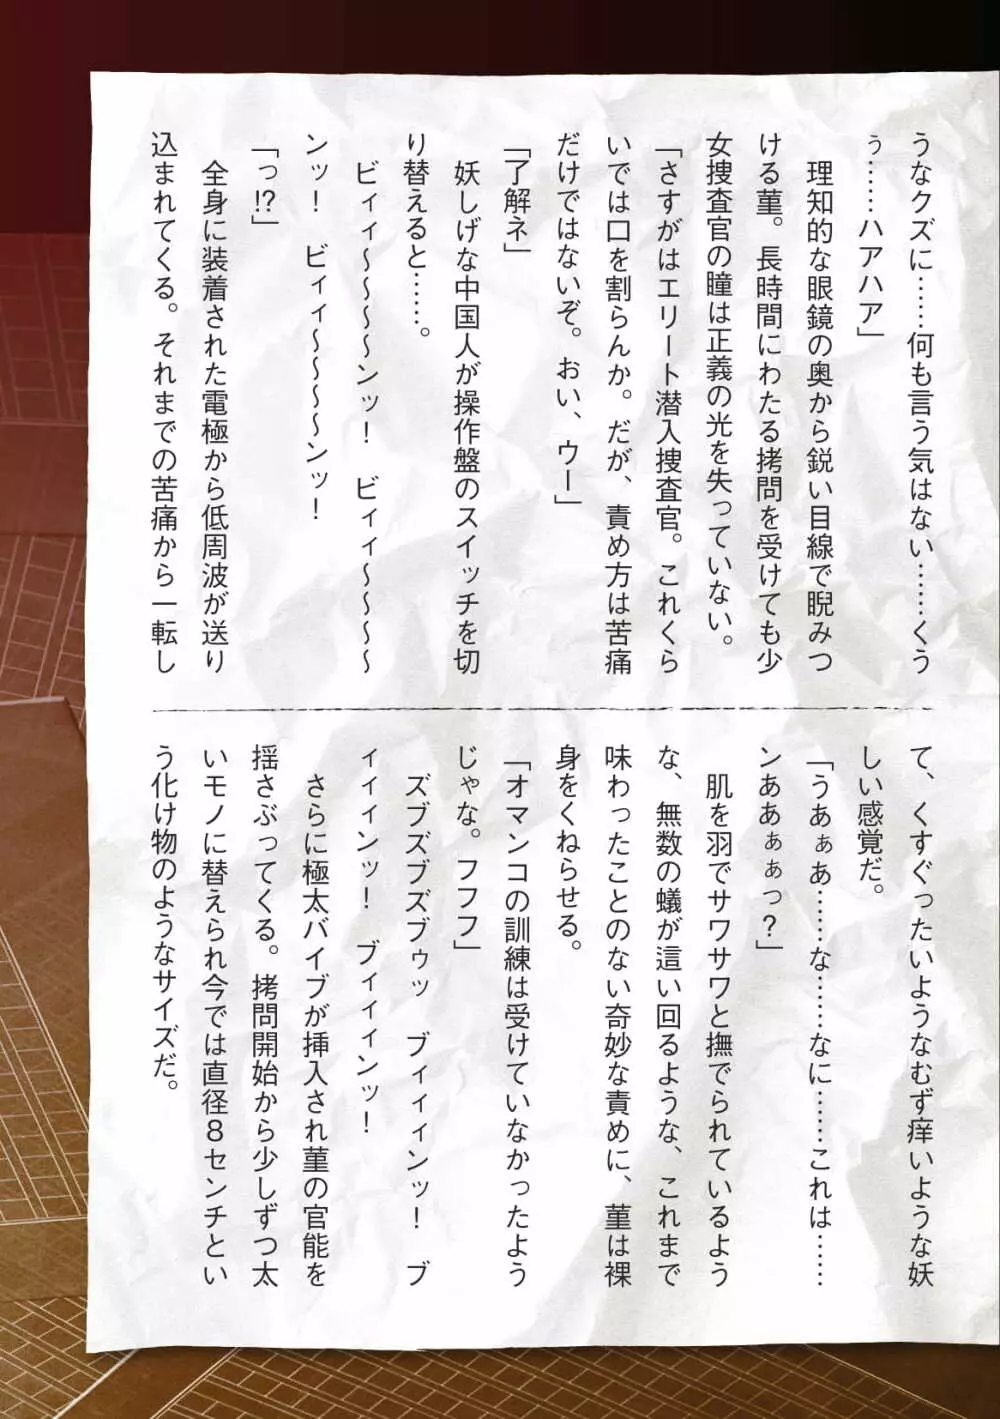 うなクズに……何も言う気はない……くう
ぅ……ハアハア」
　理知的な眼鏡の奥から鋭い目線で睨みつ
ける菫。長時間にわたる拷問を受けても少
女捜査官の瞳は正義の光を失っていない。
「さすがはエリート潜入捜査官。これくら
いでは口を割らんか。だが、責め方は苦痛
だけではないぞ。おい、ウー」
「了解ネ」
　妖しげな中国人が操作盤のスイッチを切
り替えると……。
　ビィィ～～～～ンッ！　ビィィ～～～～
ンッ！　ビィィ～～～～ンッ！
「っ!?」
　全身に装着された電極から低周波が送り
込まれてくる。それまでの苦痛から一転し
て、くすぐったいようなむず痒いような妖
しい感覚だ。
「うあぁあ………な………なに………これは……
ンああぁぁっ？」
　肌を羽でサワサワと撫でられているよう
な、無数の蟻が這い回るような、これまで
味わったことのない奇妙な責めに、菫は裸
身をくねらせる。
「オマンコの訓練は受けていなかったよう
じゃな。フフフ」
　ズブズブズブゥッ　ブィィィンッ！　ブ
ィィィンッ！　ブィィィンッ！
　さらに極太バイブが挿入され菫の官能を
揺さぶってくる。拷問開始から少しずつ太
いモノに替えられ今では直径８センチとい
う化け物のようなサイズだ。